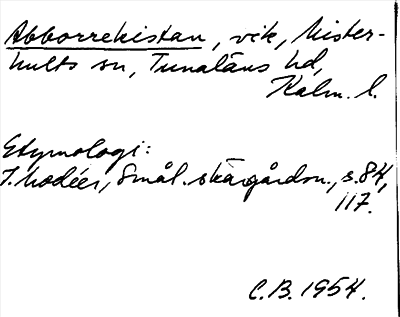 Abborrekistan, vik, Mister-
hults sn, Tunaläns hd,
Kalm. l.
Etymologi:
I. Modéer, Smål. skärgårdsn., s. 84,
117.
C.B. 1954.